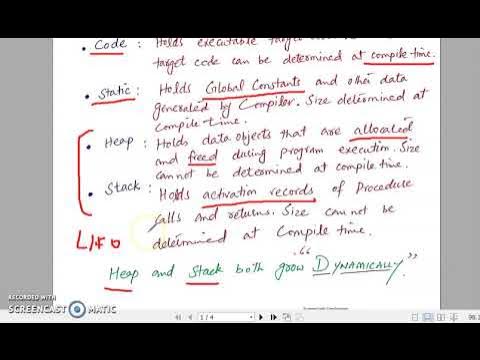 • Code : Holds executable target
target code can be determined at compile time.
• Static : Holds Global Constants and other data
generated by Compiler. Size determined at
Compile-time.
• Heap : Holds data objects that are allocated
and freed during program execution. Size
cannot be determined at compile time.
• Stack : Holds activation records of Procedure
calls and returns. Size can not be
determined at Compile time.
LIFO
Heap and Stack both grow "DYNAMICALLY".
RECORDED WITH
SCREENCAST MATIC
1 / 4